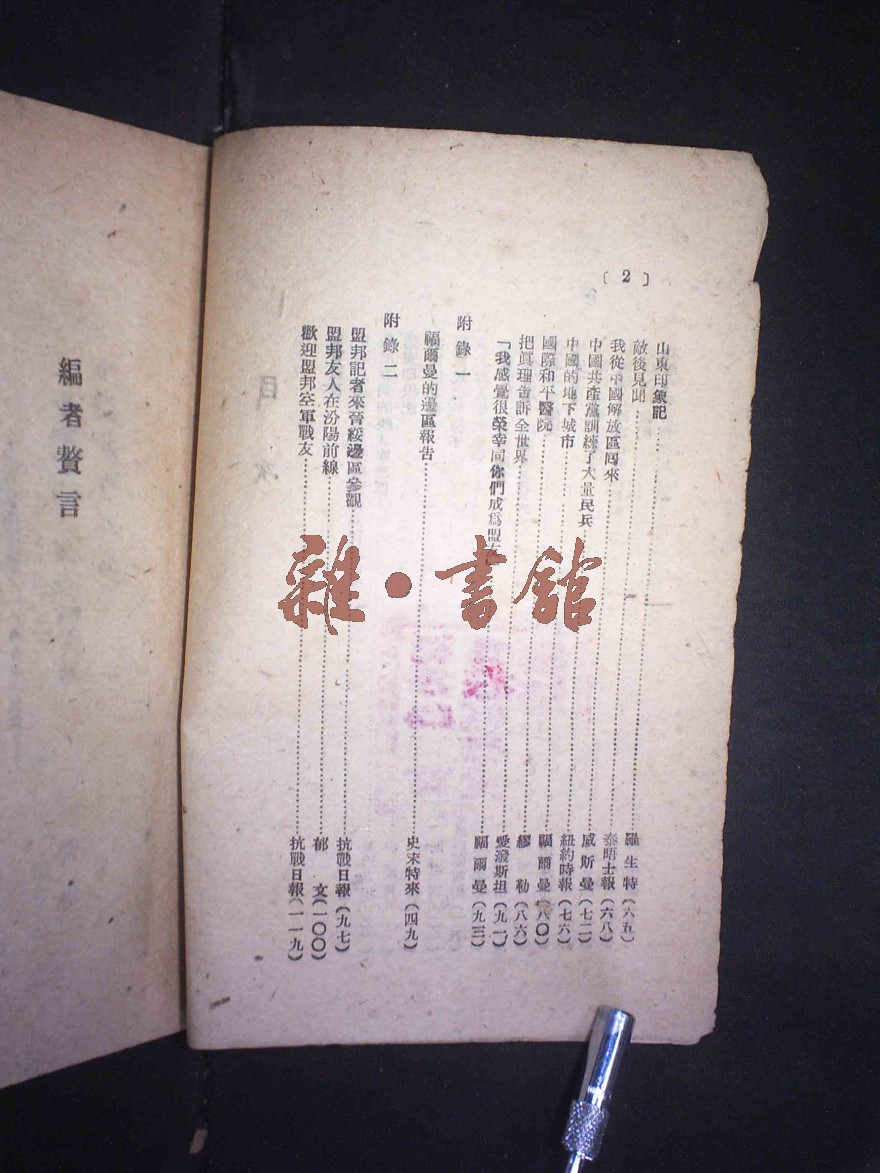 〔2〕
山東印象記……羅生特(六五)
敵後見聞……泰晤士報(六八)
我從中國解放區回來……威斯曼(七二)
中國共產黨訓練了大量民兵……紐約時報(七六)
中國的地下城市……福爾曼(八〇)
國際和平醫院……繆 勒(八六)
把眞理告訴全世界……愛潑斯坦(九一)
「我感覺很榮幸同你們成爲盟友……福爾曼(九三)
附錄一
福爾曼的邊區報告……史末特來(四九)
附錄二
盟邦記者來晉綏邊區參觀……抗戰日報(九七)
盟邦友人在汾陽前線……郁 文(一〇〇)
歡迎盟邦空軍戰友……抗戰日報(一一九)
編者贅言
雜·書館